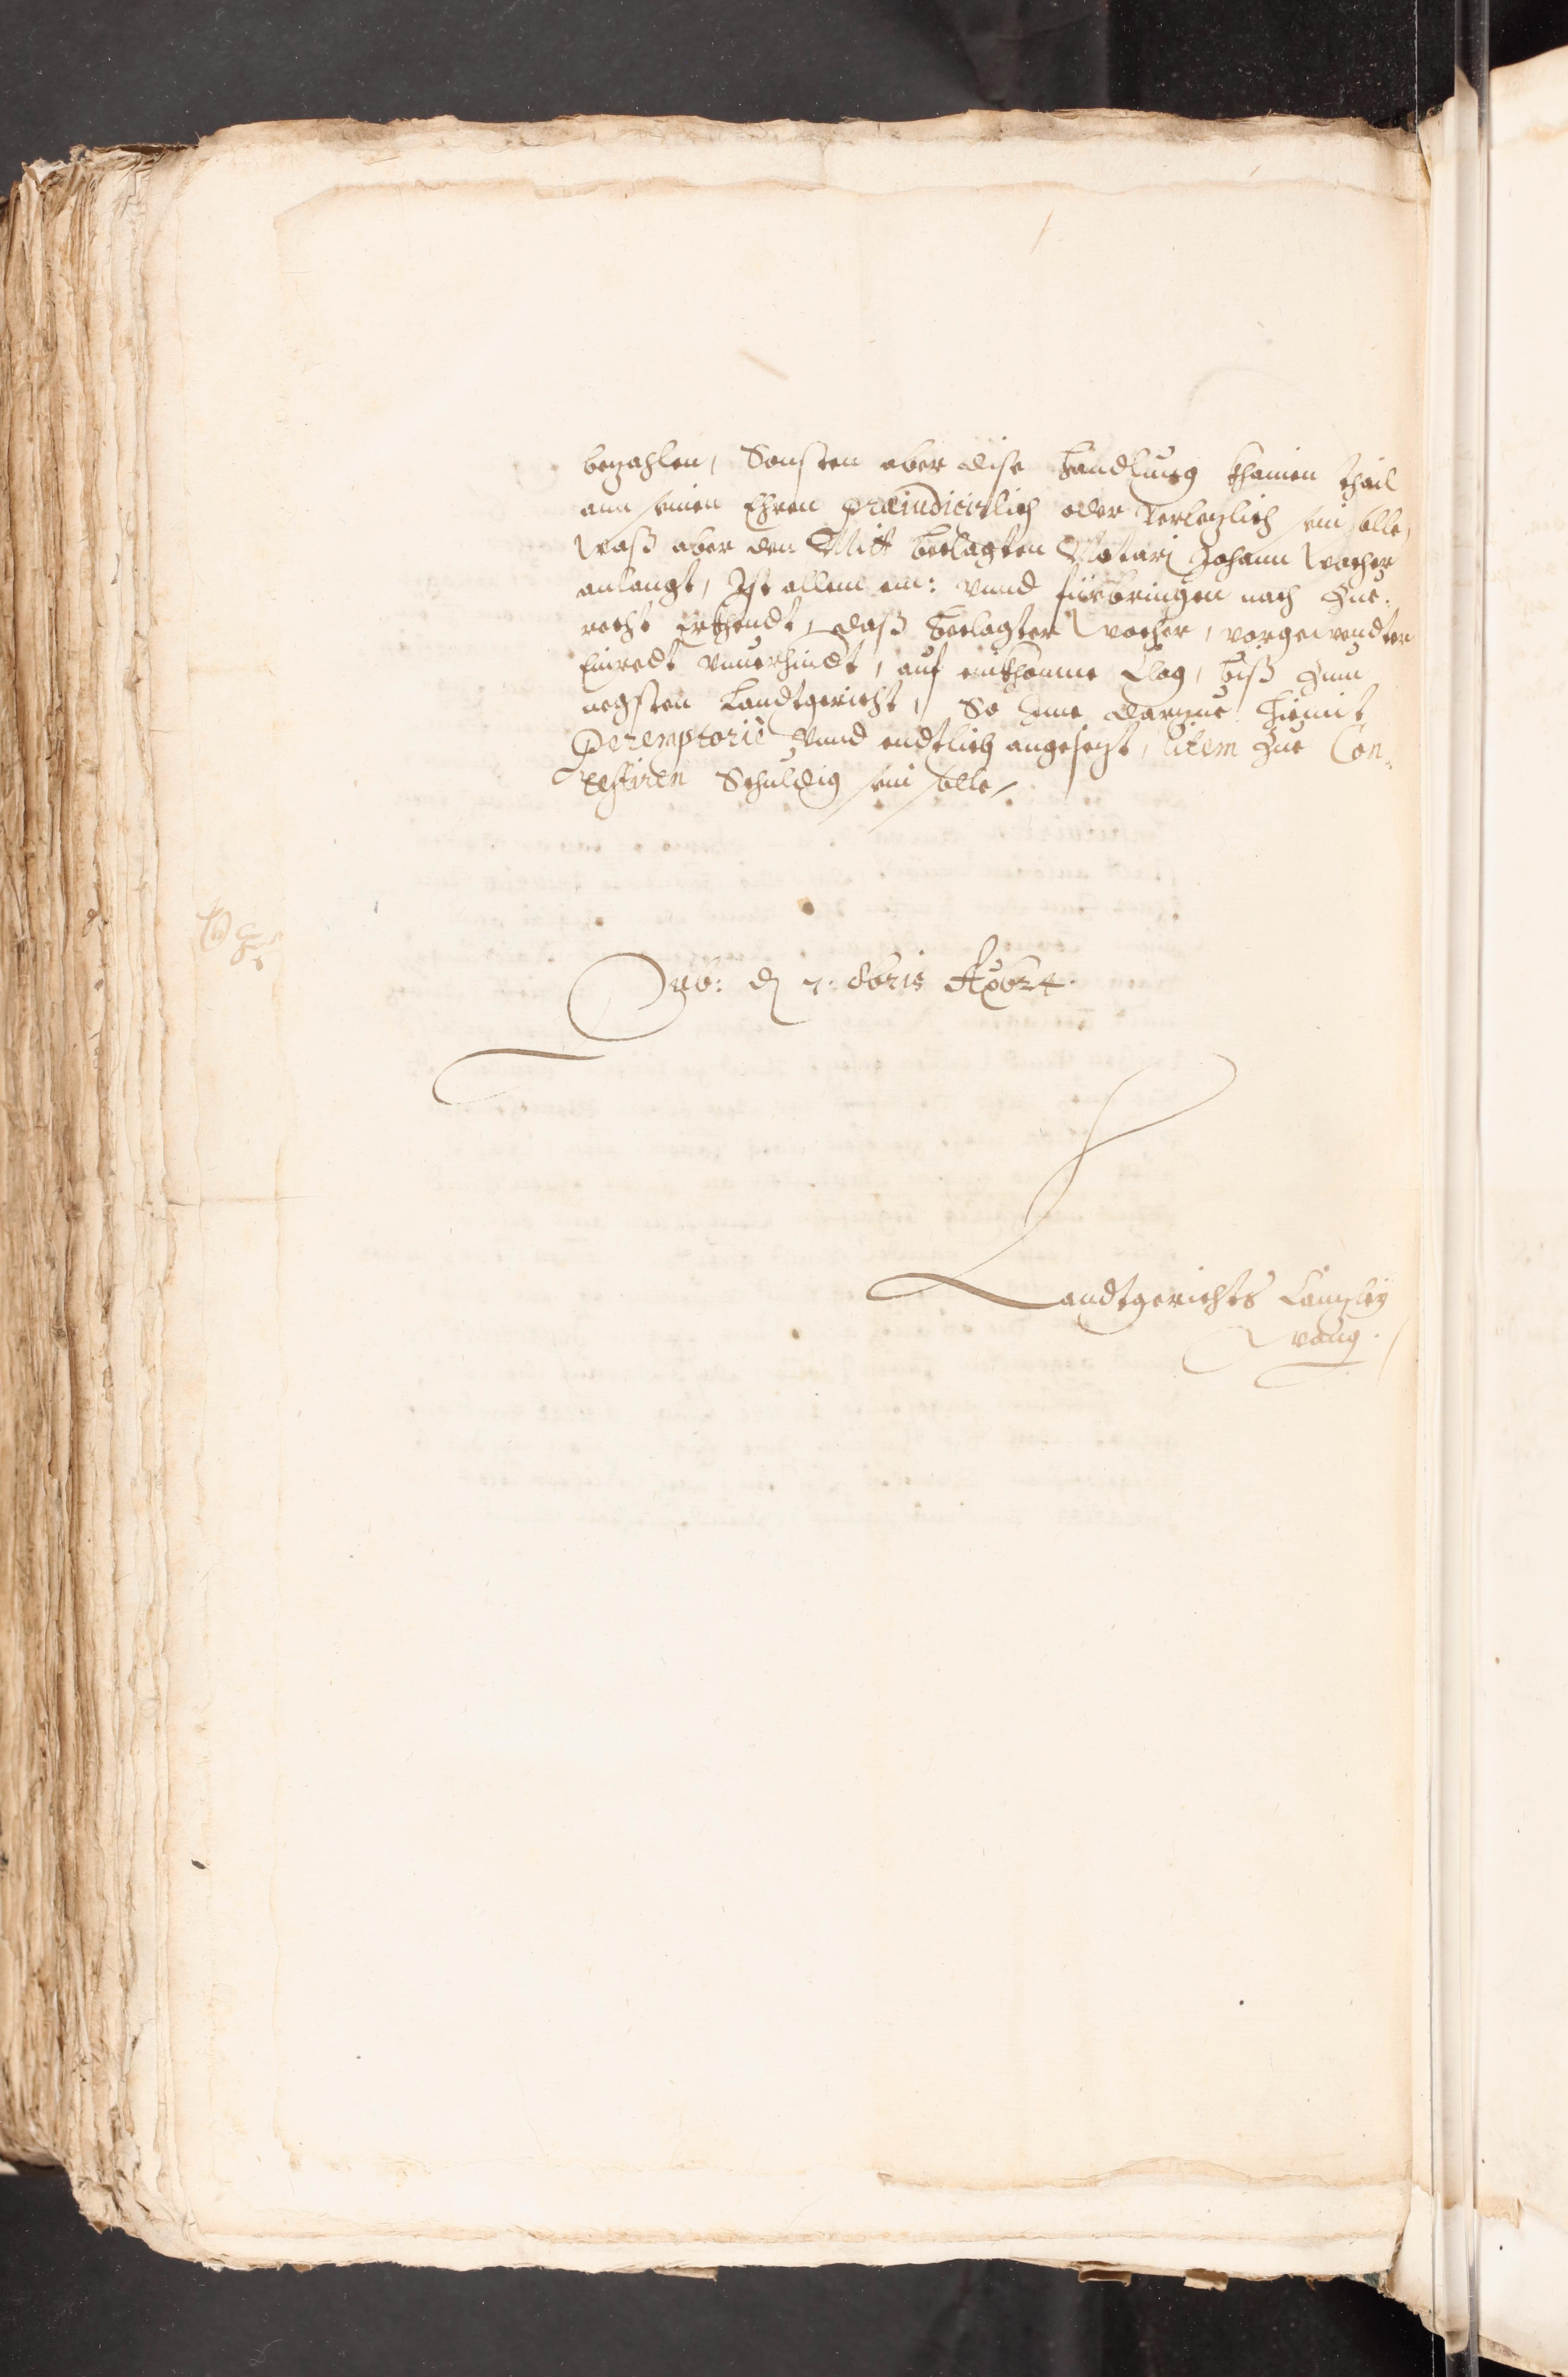 bezahlen, Sonsten aber dise Handlung khainen thail
ann seinen Ehren præiudicirlich oder verlezlich sein solle,
Waß aber den Mitt beclagten Notari Johann Wocher
anlangt, Ist allem ein: vnnd fürbringen nach Zue
recht erkhendt, daß beclagter Wocher, vorgewendter
Einredt vnuerhindt, auf einkhomne Clag, biß zum
negsten Landtgericht, So Ime darzue hiemit
Peremptoriè vnnd endtlich angesezt, litem zue Con„
testiren Schuldig sein solle,
d 7. 8bris
Landtgerichts Canzley